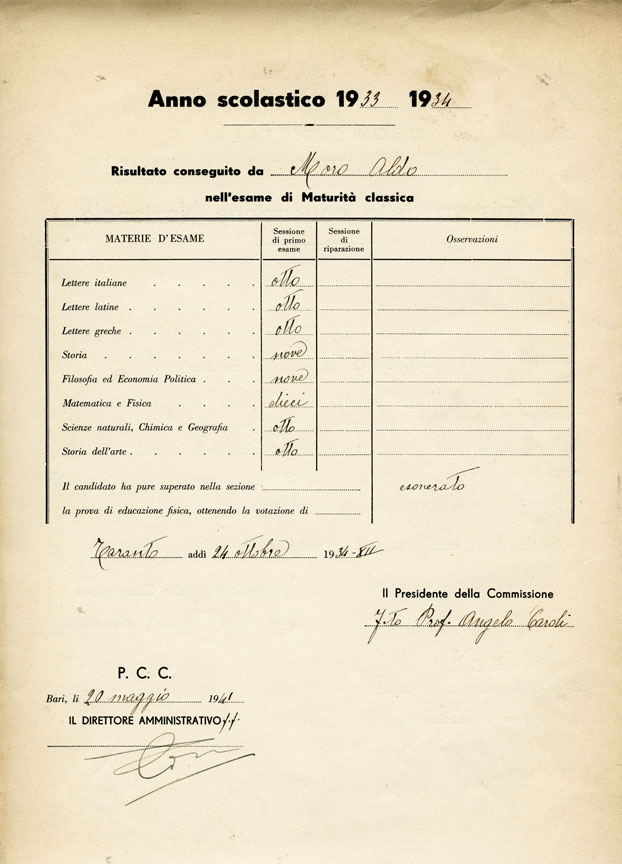 Anno scolastico 1933 1934
Risultato conseguito da Moro Aldo
nell'esame di Maturità classica
MATERIE D'ESAME Sessione di primo esame Sessione di riparazione Osservazioni
Lettere italiane . . . . . otto
Lettere latine . . . . . . otto
Lettere greche . . . . . . otto
Storia . . . . . . . nove
Filosofia ed Economia Politica . . . nove
Matematica e Fisica . . . . dieci
Scienze naturali, Chimica e Geografia . otto
Storia dell'arte . . . . . . otto
Il candidato ha pure superato nella sezione esonerato
la prova di educazione fisica, ottenendo la votazione di
Taranto addì 24 ottobre 1934-XII
Il Presidente della Commissione
F.to Prof. Angelo Caroli
P. C. C.
Bari, li 20 maggio 1941
IL DIRETTORE AMMINISTRATIVO f.f.